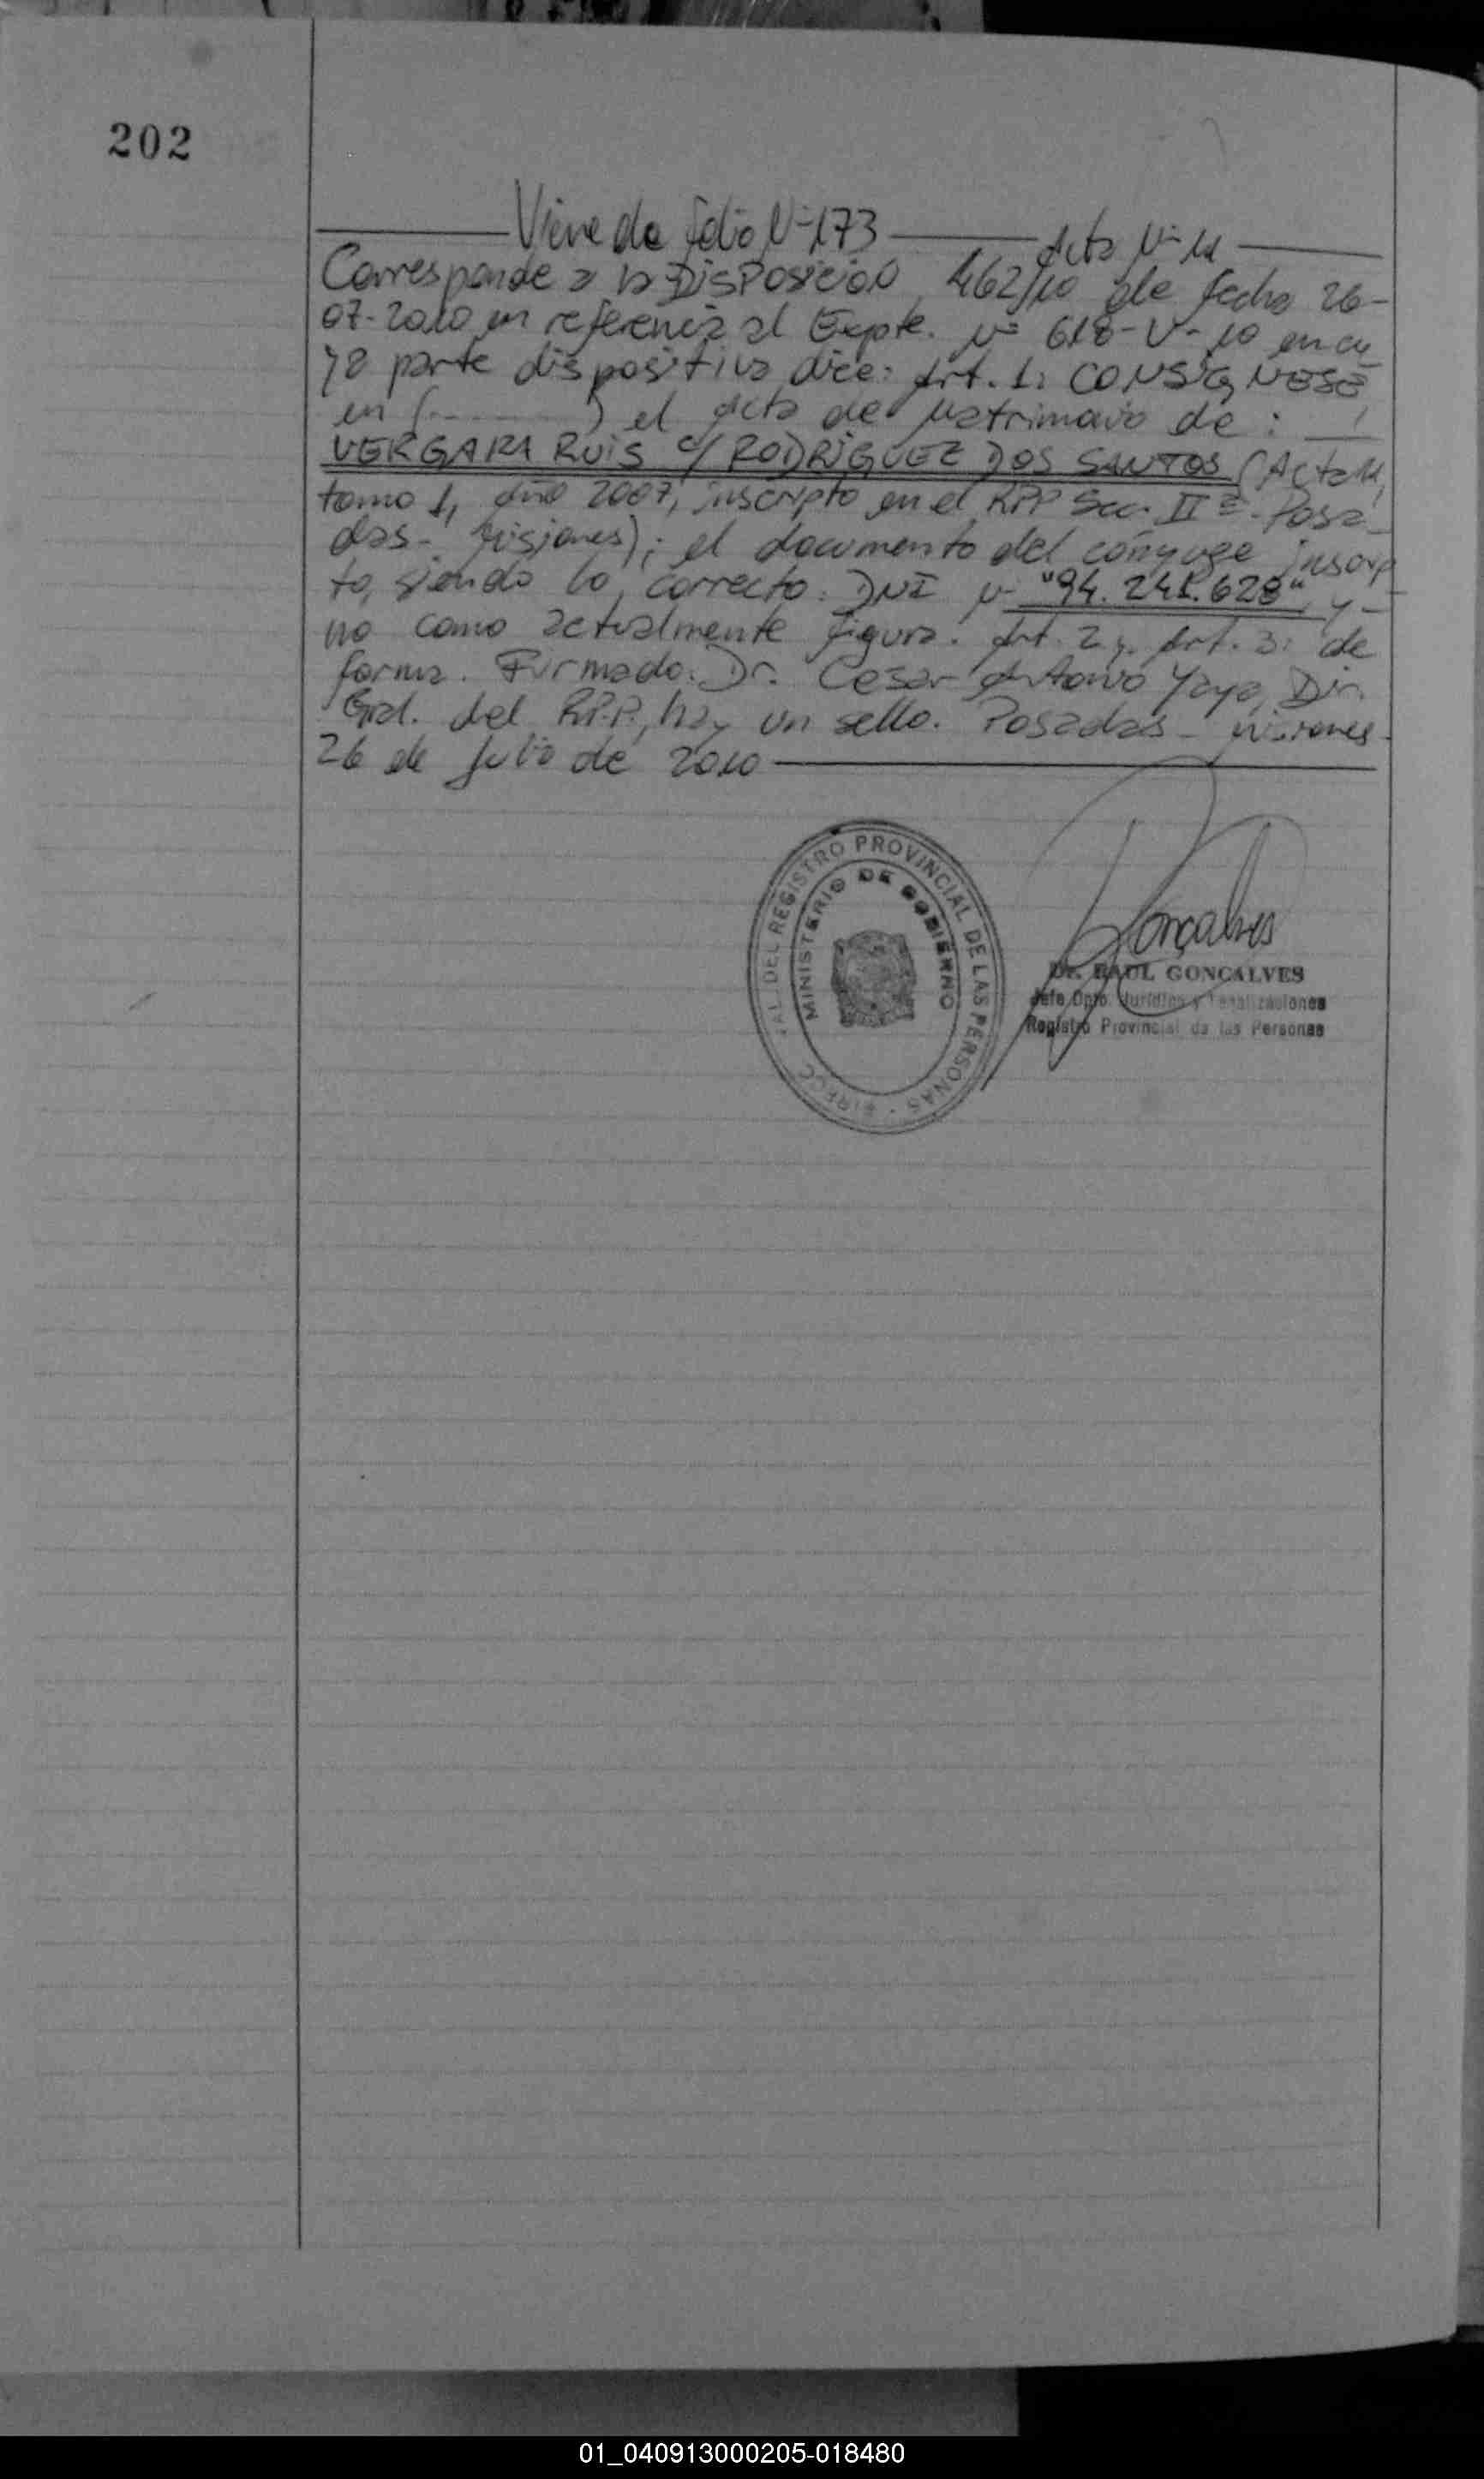 202
Viene de folio Nº 173 Acta Nº 11
Corresponde a la DISPOSICIÓN 462/10 de fecha 26-
07-2010 en referencia al Expte. Nº 618-V-10 en cu
ya parte dispositiva dice: Art. 1: CONSIGNESE
en (........) el acta de matrimonio de:
VERGARA RUIS c/ RODRIGUEZ DOS SANTOS (Acta 11,
tomo 1, año 2007, inscripto en el RPP Secc. IIª - Posa-
das - Misiones); el documento del cónyuge inscrip
to, siendo lo correcto: DNI Nº "94.241.628", y -
no como actualmente figura. Art. 2 y Art. 3: de
forma. Firmado: Dr. Cesar Antonio Yaya, Dir.
Gral. del R.P.P., hay un sello. Posadas - Misiones -
26 de Julio de 2010
REGISTRO PROVINCIAL DE LAS PERSONAS
MINISTERIO DE GOBIERNO
Gonçalves
Dr. RAUL GONCALVES
Jefe Dpto. Jurídico y Fiscalizaciones
Registro Provincial de las Personas
01_040913000205-018480